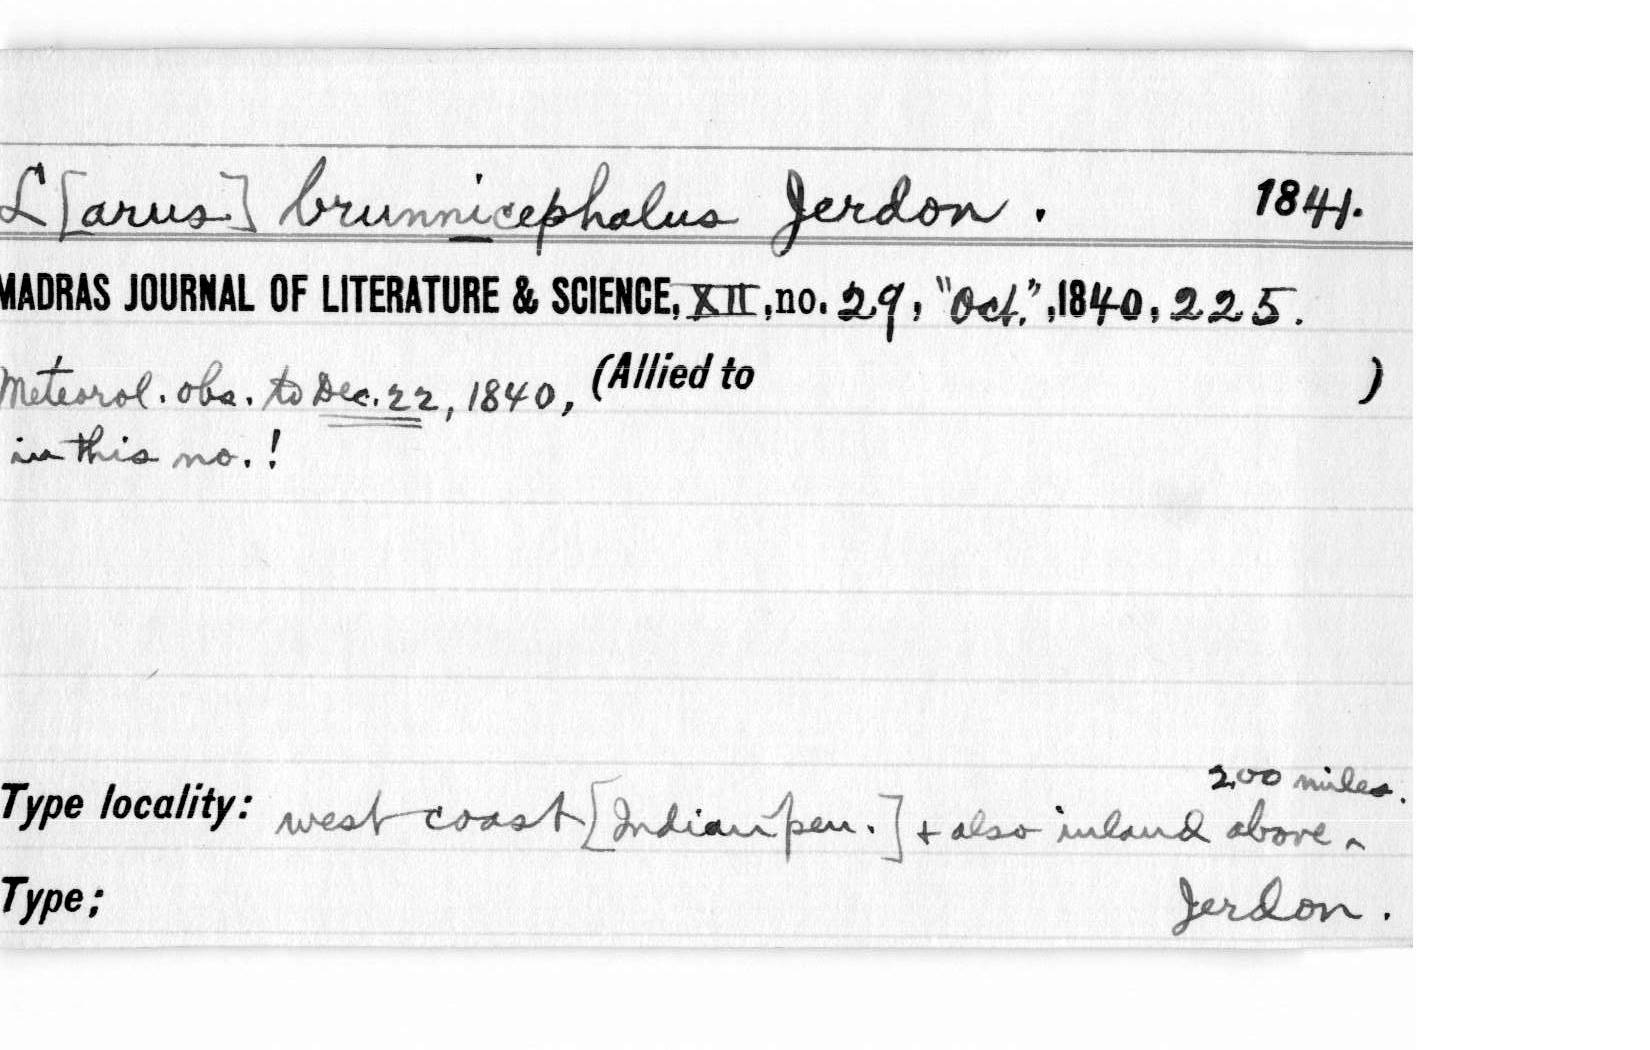 L[arus] brunnicephalus Jerdon. 1841.
MADRAS JOURNAL OF LITERATURE & SCIENCE, XII, no. 29, "Oct.", 1840, 225.
Meteorol. obs. to Dec. 22, 1840, (Allied to )
in this no.!
200 miles.
Type locality: west coast [Indian pen.] + also inland above ^
Type; Jerdon.